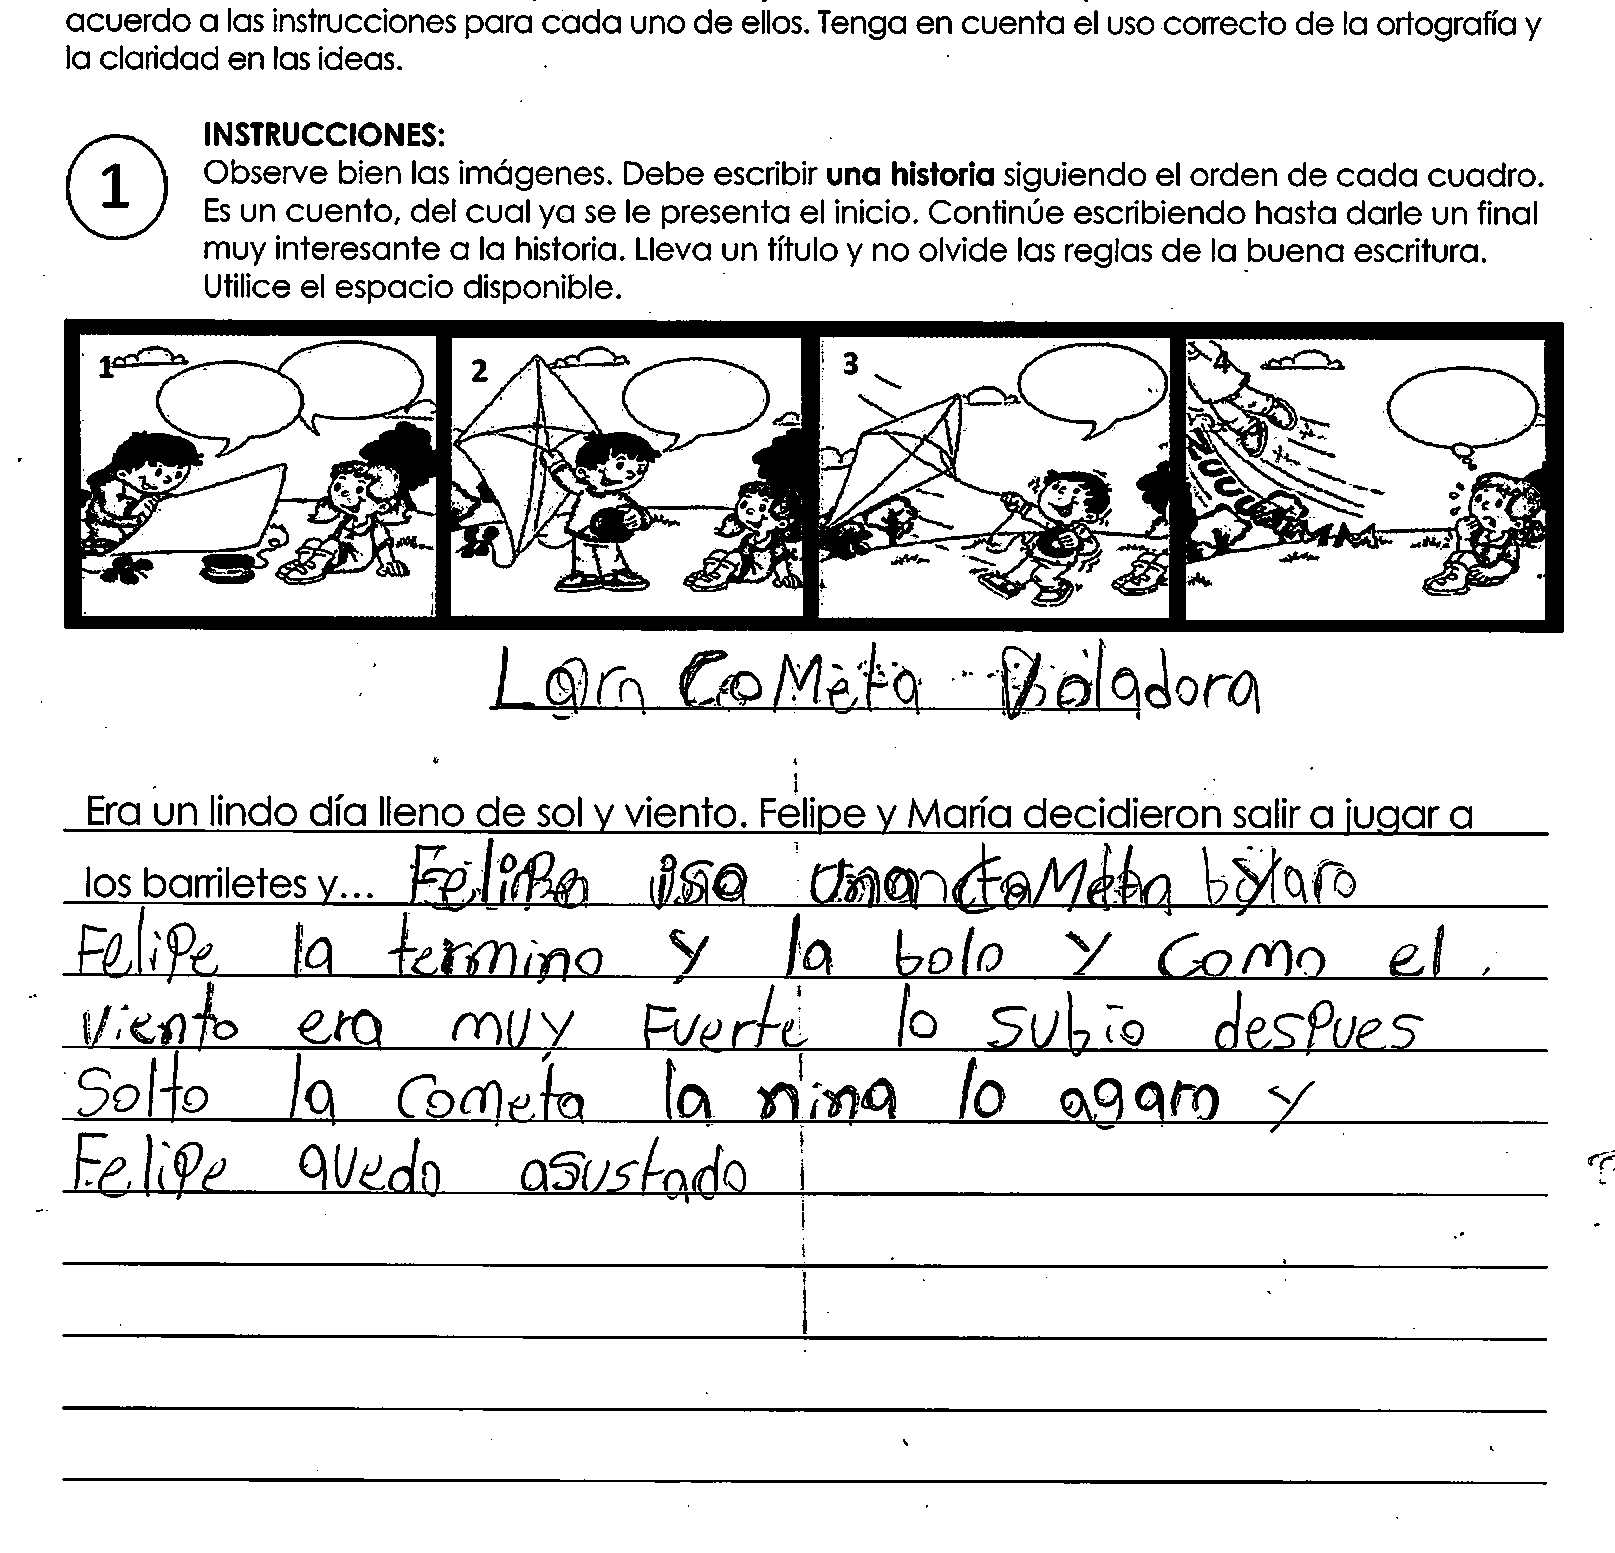 acuerdo a las instrucciones para cada uno de ellos. Tenga en cuenta el uso correcto de la ortografía y
la claridad en las ideas.
INSTRUCCIONES:
1
Observe bien las imágenes. Debe escribir una historia siguiendo el orden de cada cuadro.
Es un cuento, del cual ya se le presenta el inicio. Continúe escribiendo hasta darle un final
muy interesante a la historia. Lleva un título y no olvide las reglas de la buena escritura.
Utilice el espacio disponible.
1 2 3 4
CoMeta Boladora
Era un lindo día lleno de sol y viento. Felipe y María decidieron salir a jugar a
los barriletes y... Felipe isa
Felipe la termino y la bolo y como el
viento era muy Fuerte lo subio despues
Solto la cometa la nina lo agaro y
Felipe quedo asustado